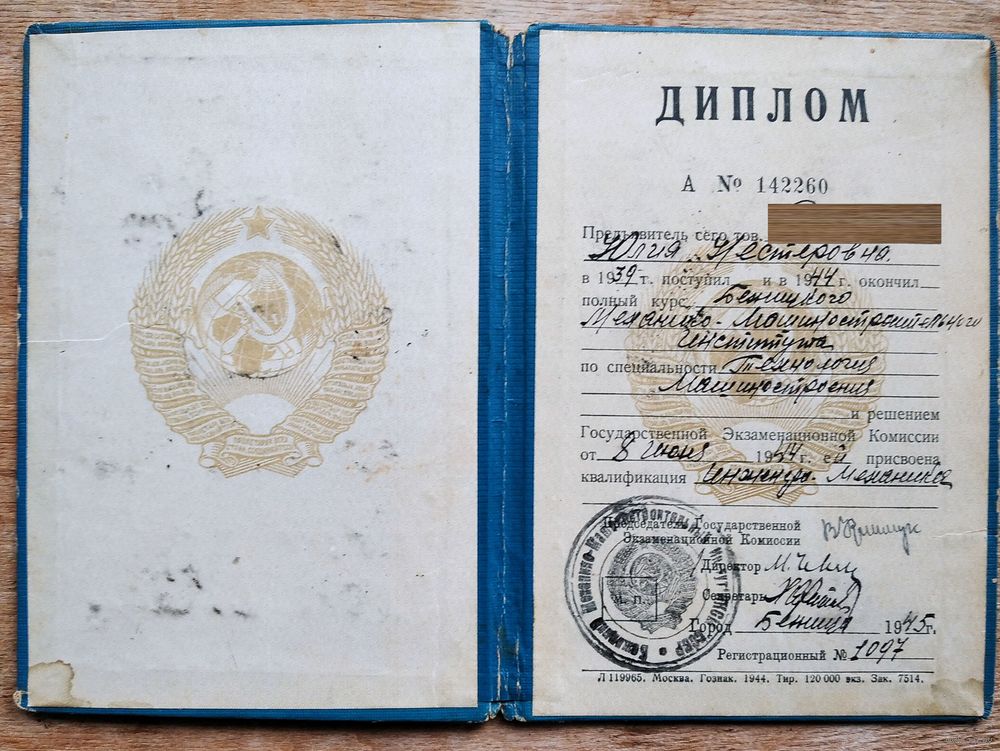 ДИПЛОМ
А № 142260
Предъявитель сего тов.
Юлия Нестеровна
в 1939 г. поступил и в 1944 г. окончил
полный курс Бежицкого
Механико-Машиностроительного
Института
по специальности Технология
Машиностроения
и решением
Государственной Экзаменационной Комиссии
от 8 июня 1944 г. ей присвоена
квалификация Инженера-Механика
Председатель Государственной
Экзаменационной Комиссии
Директор
Секретарь
М. П.
Город Бежица 1945 г.
Регистрационный № 1097
Л 119965. Москва. Гознак. 1944. Тир. 120 000 экз. Зак. 7514.